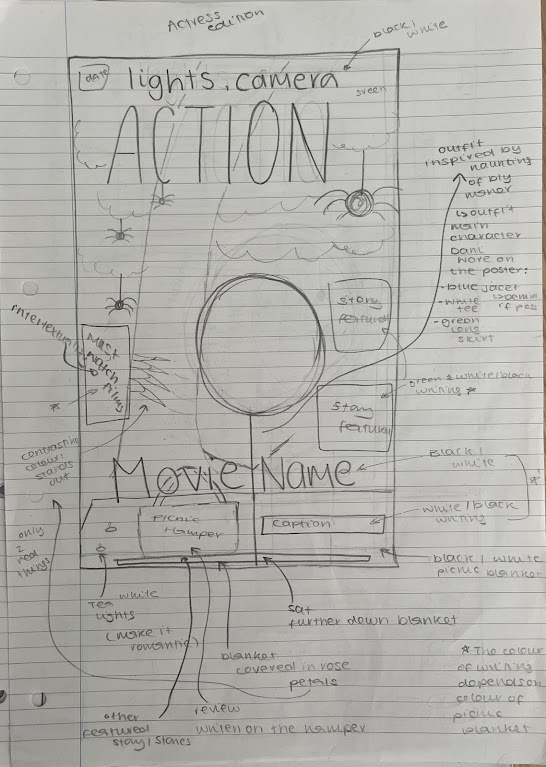 Actress
edition
black/
white
date
lights, camera
green
ACTION
outfit
inspired by
haunting
of bly
manor
↳ outfit
main
character
Dani
wore on
the poster:
- blue jacet
- white
tee
- green
long
skirt
story
featured
Must
Watch
films
green & white/black
writing *
Story
featured
*
contrasting
colour:
stands
out
Movie Name
Black/
white
*
Picnic
Hamper
caption
white/black
writing
only
2
real
things
black/white
picnic blanket
Tea white
lights
(make it
romantic)
sat
further down blanket
blanket
covered in rose
petals
other
featured
story/stories
review
written on the hamper
* The colour
of writing
depends on
colour of
picnic
blanket